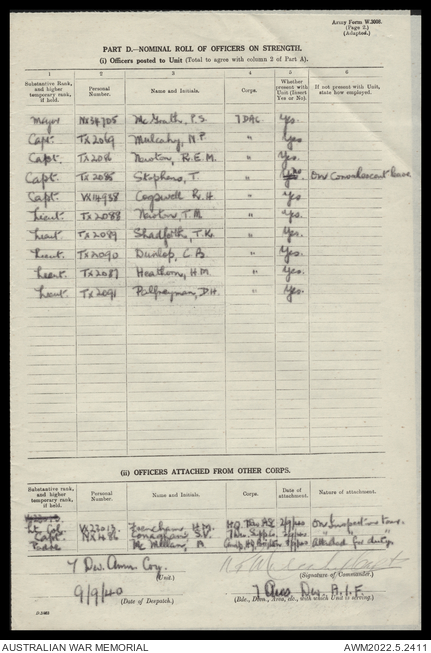 Army Form W.3008.
(Page 2.)
(Adapted.)
PART D.—NOMINAL ROLL OF OFFICERS ON STRENGTH.
(i) Officers posted to Unit (Total to agree with column 2 of Part A).
1 2 3 4 5 6
Substantive Rank, and higher temporary rank, if held. Personal Number. Name and Initials. Corps. Whether present with Unit (Insert Yes or No). If not present with Unit, state how employed.
Major NX34705 McGrath, P.S. 7 DAC Yes.
Capt. TX2049 Mulcahy, N.P. " Yes
Capt. TX2086 Newton, R.E.M. " Yes.
Capt. TX2085 Stephens, T. " On Convalescent leave
Capt. VX14938 Cogswell R.H. " Yes.
Lieut. TX2088 Newton, T.M. " Yes.
Lieut. TX2089 Shadforth, T.K. " Yes.
Lieut. TX2090 Dunlop, C.B. " Yes.
Lieut. TX2087 Heathorn, H.M. " Yes.
Lieut. TX2091 Palfreyman, D.H. " Yes.
(ii) OFFICERS ATTACHED FROM OTHER CORPS.
Substantive rank, and higher temporary rank, if held. Personal Number. Name and Initials. Corps. Date of attachment. Nature of attachment.
Lt Col. VX22013. H.M. H.Q. 2/9/40 On Inspection Tour.
Capt. NX486 Conaghan, S.V. 2/9/40 " "
McMillan, A. Attached for duty.
7 Div. Amm. Coy.
(Unit.) (Signature of Commander.)
9/9/40 7 Aus. Div. A.I.F.
(Date of Despatch.) (Bde., Divn., Area, etc., with which Unit is serving.)
AUSTRALIAN WAR MEMORIAL AWM2022.5.2411